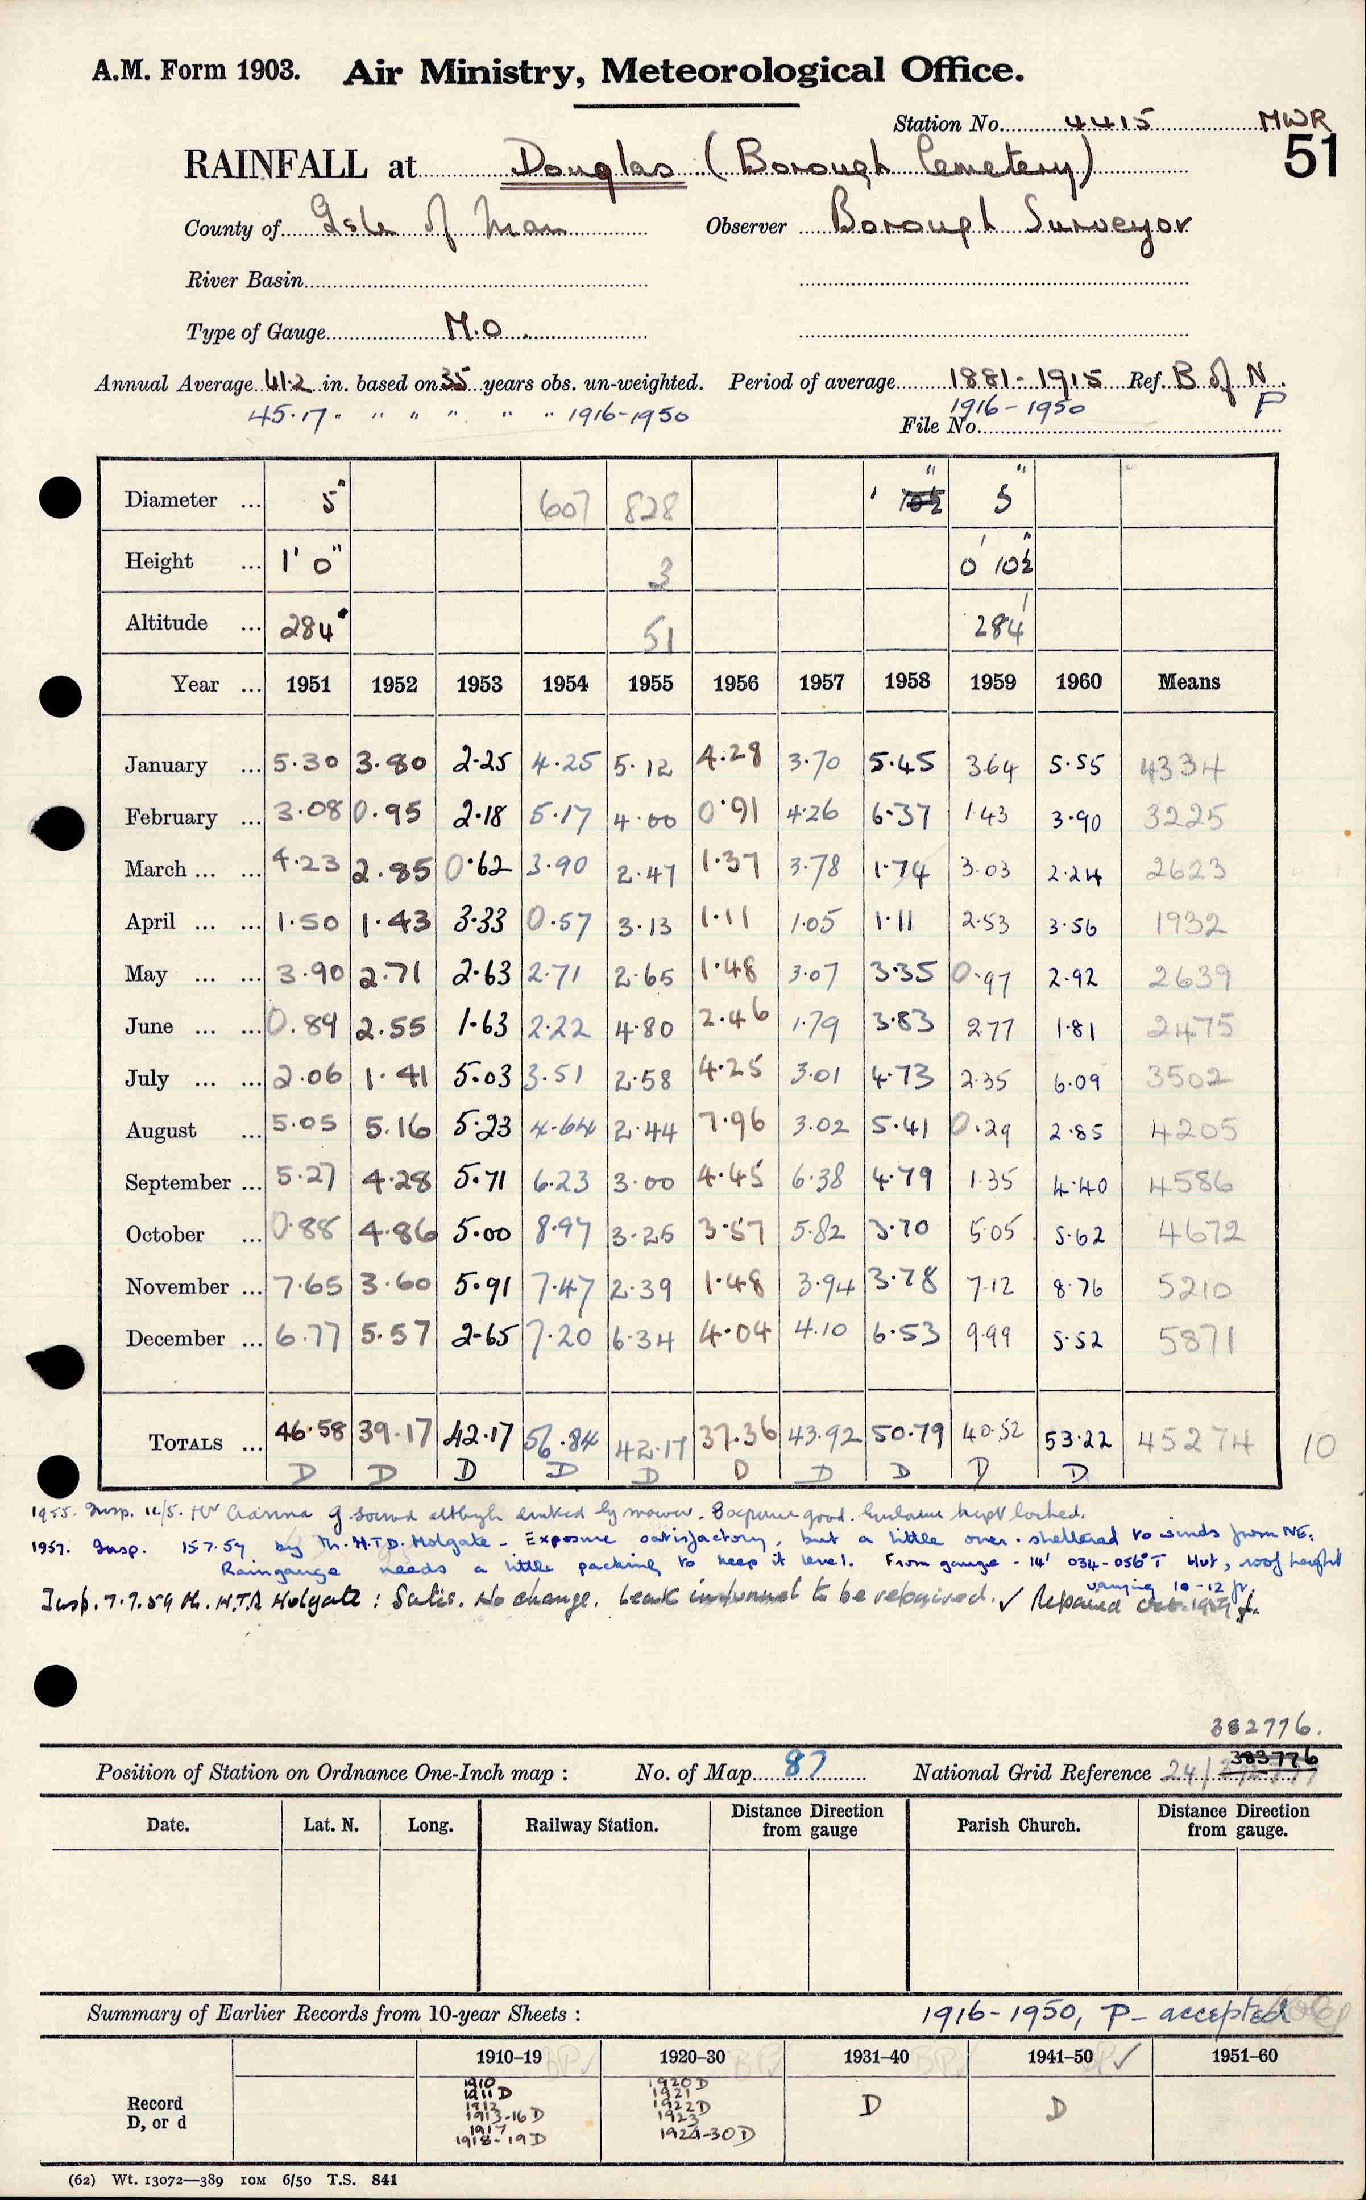 A.M. Form 1903. Air Ministry, Meteorological Office.
Station No. 4415 MWR
RAINFALL at Douglas (Borough Cemetery) 51
County of Isle of Man Observer Borough Surveyor
River Basin
Type of Gauge M.O.
Annual Average 41.2 in. based on 35 years obs. un-weighted. Period of average 1881-1915 Ref. B of N
45.17 " " " " " " 1916-1950 1916-1950 P
File No.
Diameter ... 5" 607 828 " 5"
Height ... 1' 0" 3 0' 10½"
Altitude ... 284' 51 284'
Year ... 1951 1952 1953 1954 1955 1956 1957 1958 1959 1960 Means
January ... 5.30 3.80 2.25 4.25 5.12 4.28 3.70 5.45 3.64 5.55 4334
February ... 3.08 0.95 2.18 5.17 4.00 0.91 4.26 6.37 1.43 3.90 3225
March ... ... 4.23 2.85 0.62 3.90 2.47 1.37 3.78 1.74 3.03 2.24 2623
April ... ... 1.50 1.43 3.33 0.57 3.13 1.11 1.05 1.11 2.53 3.56 1932
May ... ... 3.90 2.71 2.63 2.71 2.65 1.48 3.07 3.35 0.97 2.92 2639
June ... ... 0.89 2.55 1.63 2.22 4.80 2.46 1.79 3.83 2.77 1.81 2475
July ... ... 2.06 1.41 5.03 3.51 2.58 4.25 3.01 4.73 2.35 6.09 3502
August ... 5.05 5.16 5.23 4.64 2.44 7.96 3.02 5.41 0.29 2.85 4205
September ... 5.27 4.28 5.71 6.23 3.00 4.45 6.38 4.79 1.35 4.40 4586
October ... 0.88 4.86 5.00 8.97 3.25 3.57 5.82 3.70 5.05 5.62 4672
November ... 7.65 3.60 5.91 7.47 2.39 1.48 3.94 3.78 7.12 8.76 5210
December ... 6.77 5.57 2.65 7.20 6.34 4.04 4.10 6.53 9.99 5.52 5871
TOTALS ... 46.58 39.17 42.17 56.84 42.17 37.36 43.92 50.79 40.52 53.22 45274 10
D D D D D D D D D D
1955. Insp. 11/5. Mr g. sound although by mower. Exposure good. kept locked.
1957. Insp. 15.7.57 by Mr. H.T.D. Holgate - Exposure satisfactory, but a little over-sheltered to winds from NE.
Raingauge needs a little packing to keep it level. From gauge - 14' 034-056°T Hut, roof height
varying 10-12 ft.
Insp. 7.7.59 Mr. H.T.D. Holgate: Satis. No change. Leak in funnel to be repaired. ✓ Repaired Oct. 1959
382776.
383776
Position of Station on Ordnance One-Inch map : No. of Map 87 National Grid Reference 24/
Date. Lat. N. Long. Railway Station. Distance Direction from gauge Parish Church. Distance Direction from gauge.
Summary of Earlier Records from 10-year Sheets : 1916-1950, P- accepted
1910–19 1920–30 1931–40 1941–50 ✓ 1951–60
Record D, or d
1910 1920 D D D
1911 D 1921
1912 1922 D
1913-16 D 1923
1917 1924-30 D
1918-19 D
(62) Wt. 13072—389 10M 6/50 T.S. 841